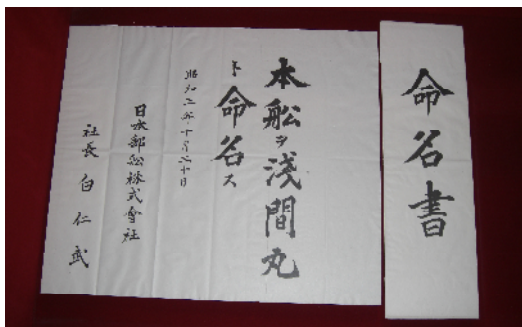 命名書
本船ヲ淺間丸
ト命名ス
昭和三年十月三十日
日本郵船株式會社
社長 白仁武